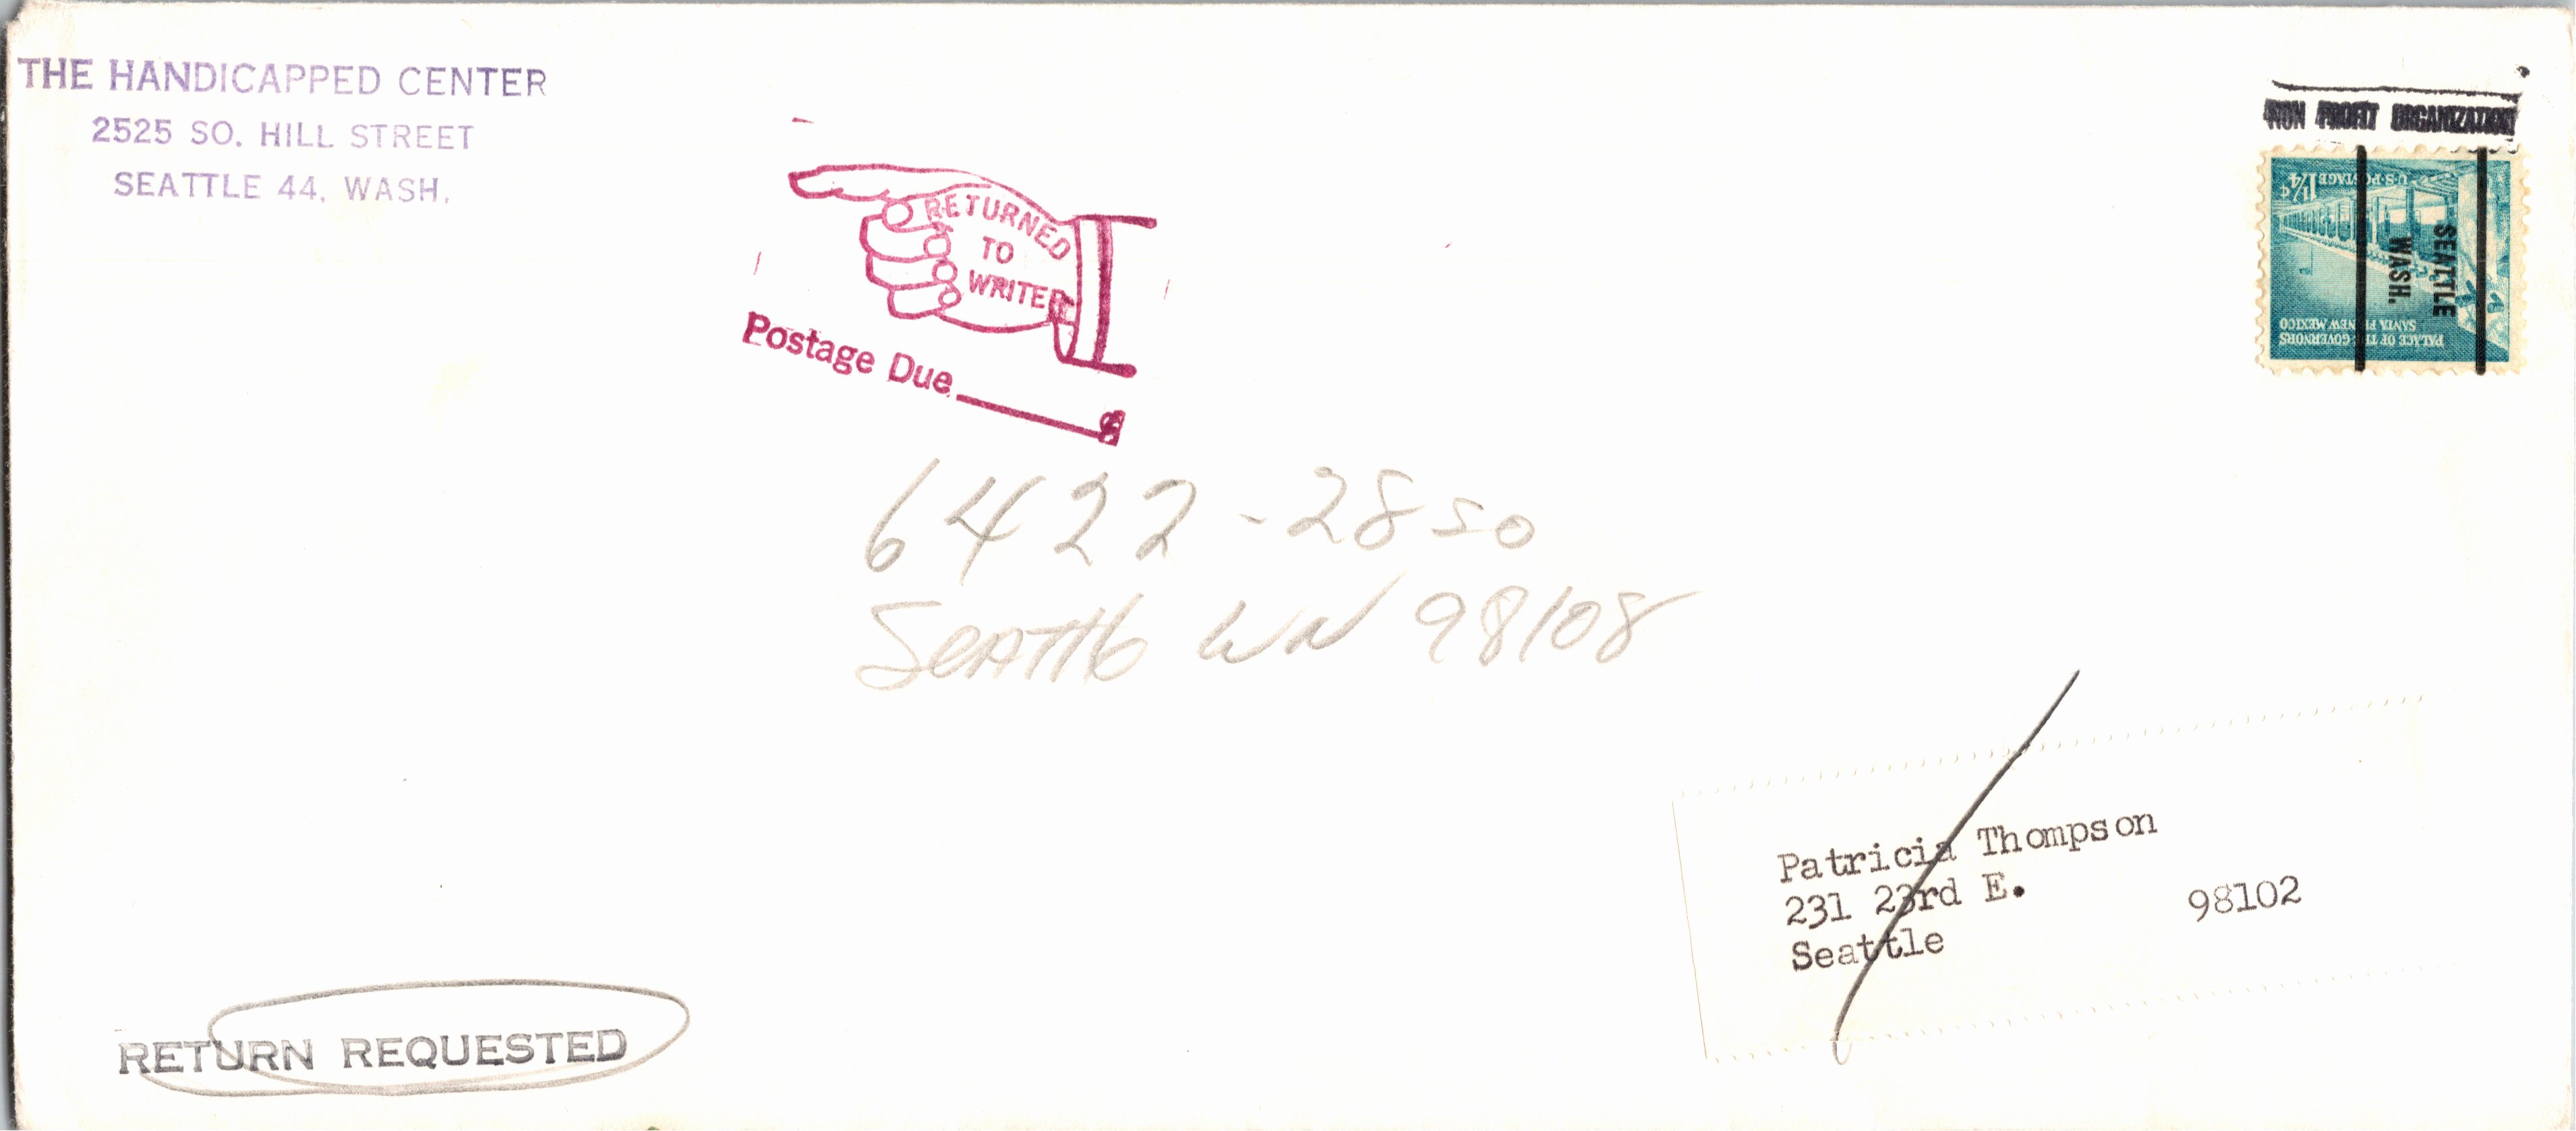 THE HANDICAPPED CENTER
2525 SO. HILL STREET
SEATTLE 44, WASH.
NON PROFIT ORGANIZATION
U·S·POSTAGE 1¼¢
SEATTLE
WASH.
PALACE OF THE GOVERNORS
SANTA FE, NEW MEXICO
RETURNED
TO
WRITER
Postage Due
6422-28 SO
Seattle WN 98108
Patricia Thompson
231 23rd E.
Seattle 98102
RETURN REQUESTED